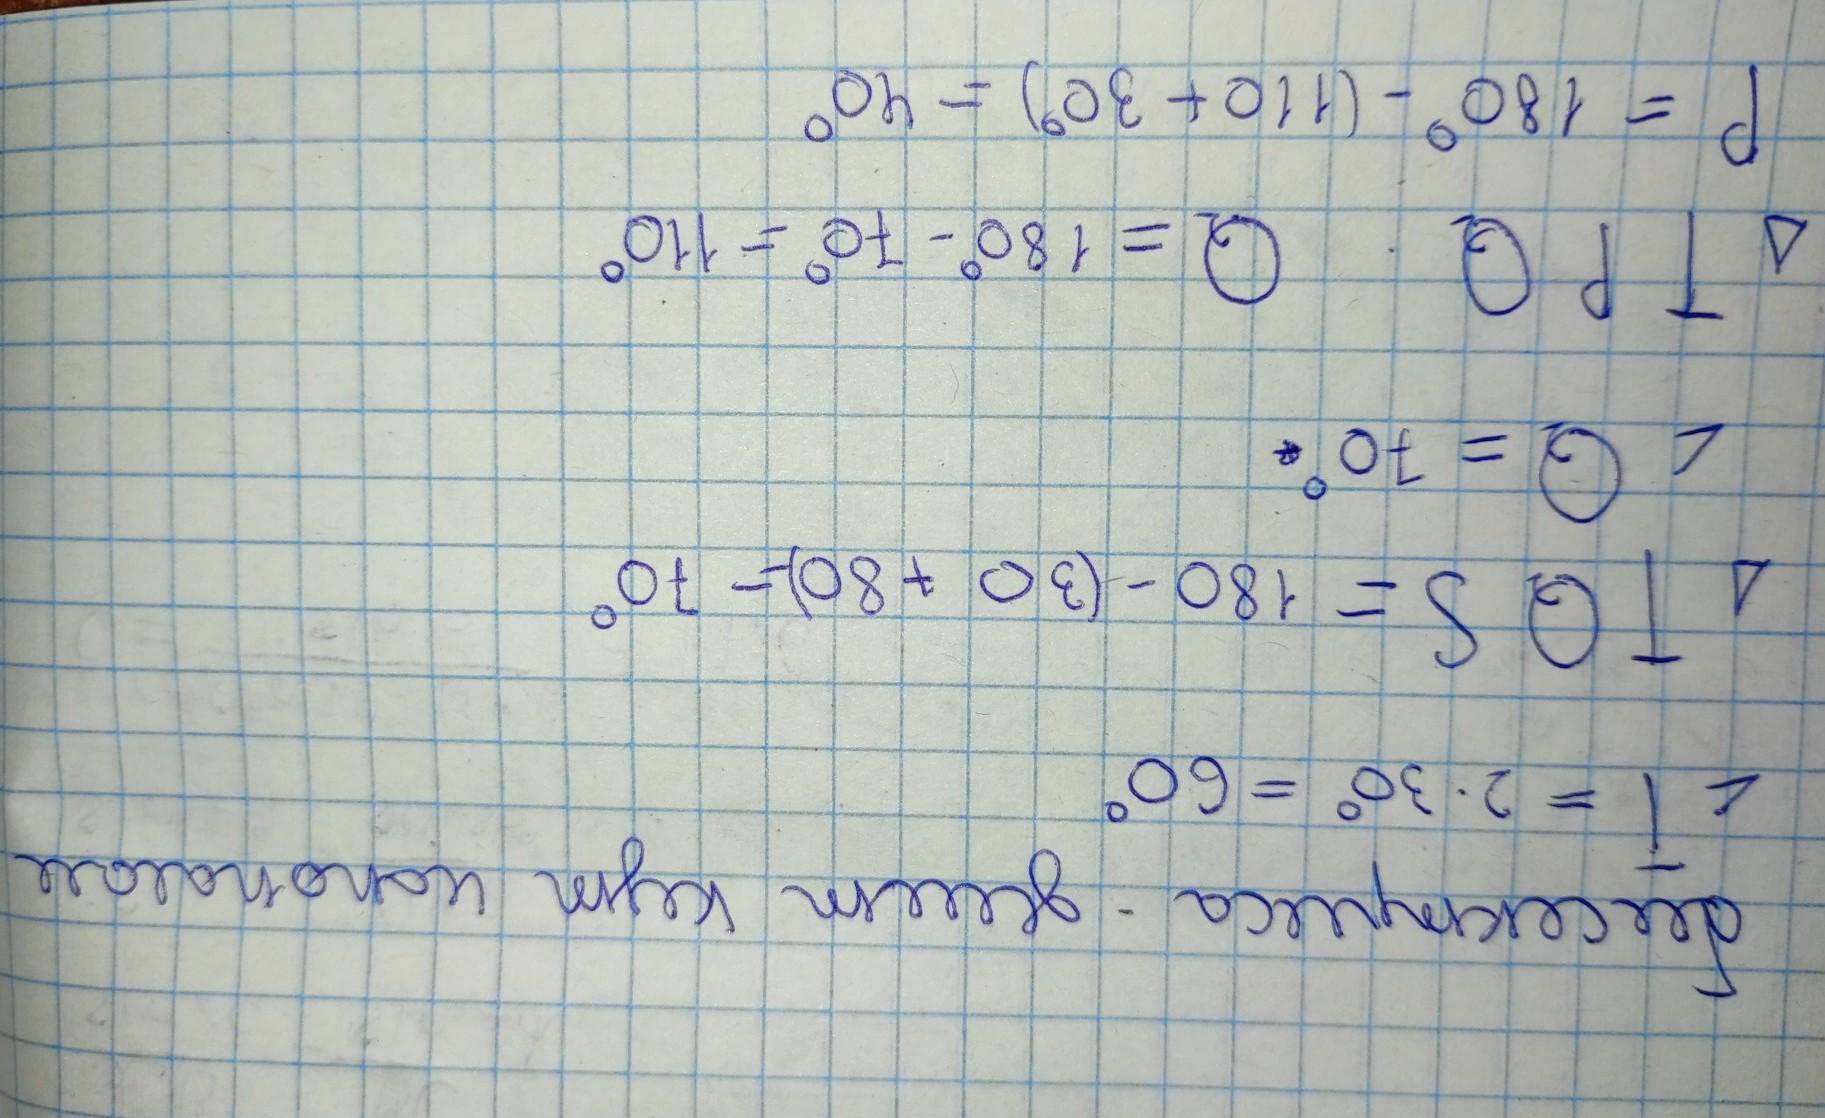 бисектриса - делит кут напополам
< T = 2·30° = 60°
△ TQS = 180 - (30 + 80) = 70°
< Q = 70°
△ TPQ . Q = 180° - 70° = 110°
P = 180° - (110 + 30°) = 40°